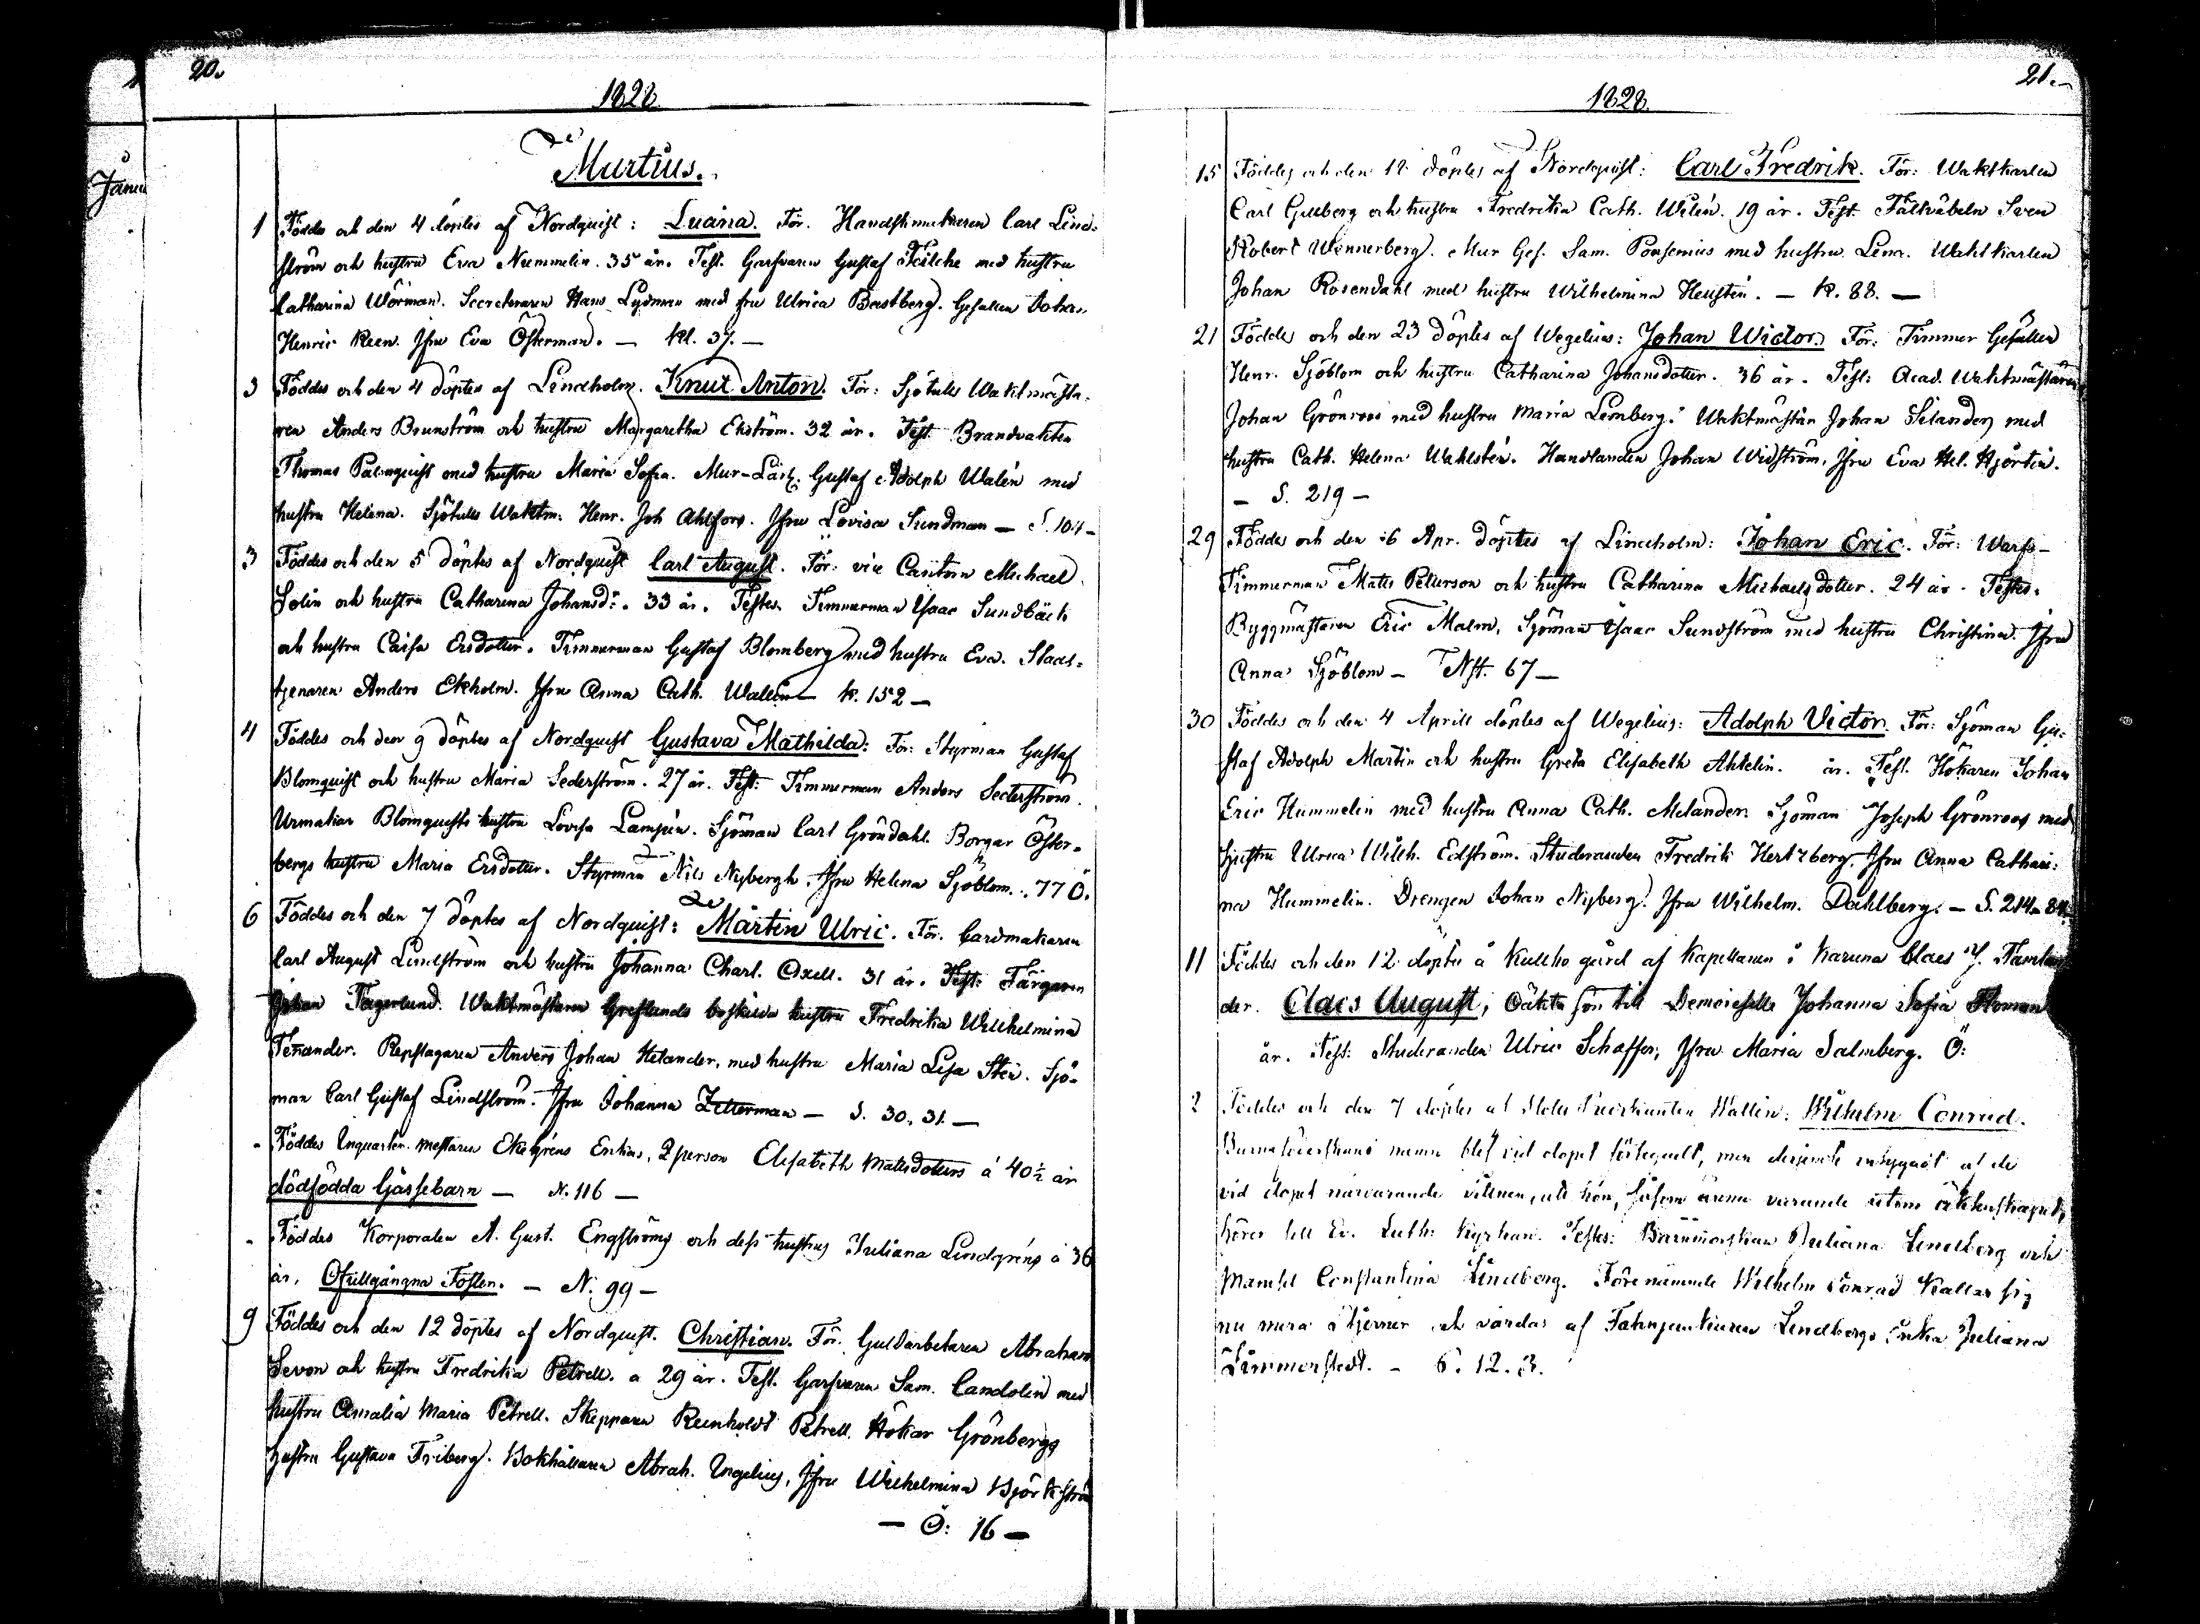 20.
1828.
Martius.
Janu
1 Föddes och den 4 döptes af Nordquist: Luana. För. Handskmakaren Carl Lind-
ström och hustru Eva Nummelin. 35 år. Test. Garfvaren Gustaf Fölche med hustru
Catharina Wörman. Secreteraren Hans Lydman med fru Ulrica Bastberg. Gesällen Johan
Henric Reen. Jfru Eva Österman. — Kl. 37. —
3 Föddes och den 4 döptes af Lindholm. Knut Anton. För: Sjötulls Waktmästa-
ren Anders Brunström och hustru Margaretha Ekström. 32 år. Test. Brandvakten
Thomas Palmquist med hustru Maria Sofia. Mur-Lärl. Gustaf Adolph Walén med
hustru Helena. Sjötulls Waktm. Henr. Joh Ahlfors. Jfru Lovisa Sundman — S. 104 —
3 Föddes och den 5 döptes af Nordquist Carl August. För: vice Cantorn Michael
Solin och hustru Catharina Johansdr. 33 år. Testes. Timmerman Isaac Sundbäck
och hustru Caisa Ersdotter. Timmerman Gustaf Blomberg med hustru Eva. Stads-
tjenaren Anders Ekholm. Jfru Anna Cath. Wallin — K. 152 —
4 Föddes och den 9 döptes af Nordquist Gustava Mathilda: För: Styrman Gustaf
Blomquist och hustru Maria Sederström. 27 år. Test: Timmerman Anders Sederström.
Urmakar Blomquists hustru Lovisa Lampén. Sjöman Carl Gröndahl. Borgar Öster-
bergs hustru Maria Ersdotter. Styrman Nils Nybergh. Jfru Helena Sjöblom. 77 Ö.
6 Föddes och den 7 döptes af Nordquist: Mårtin Ulric. För. Cardmakaren
Carl August Lindström och hustru Johanna Charl. Oxell. 31 år. Test: Färgaren
Johan Fagerlund. Waktmästaren Greflunds boskilda hustru Fredrika Wilhelmina
Tenander. Repslagaren Anders Johan Helander, med hustru Maria Lisa Sten. Sjö-
man Carl Gustaf Lindström. Jfru Johanna Zetterman — S. 30, 31. —
- Föddes Inquarter. mestaren Ekegréns Enkas, 2 person Elisabeth Mattsdotters á 40½ år
dödfödda Gåssebarn — N. 116 —
- Föddes Korporalen A. Gust. Engströms och dess hustrus Juliana Lindgréns á 36
år, Ofullgångna Foster. — N. 99 —
9 Föddes och den 12 döptes af Nordquist. Christian. För. Guldarbetaren Abraham
Sevon och hustru Fredrika Petrell. a 29 år. Test. Garfvaren Sam. Candolin med
hustru Amalia Maria Petrell. Skepparen Reinholdt Petrell. Hökar Grönbergs
hustru Gustava Friberg. Bokhållaren Abrah. Ingelius, Jfru Wilhelmina Björkströ
— Ö: 16 —
21.
1828.
15 Föddes och den 18 döptes af Nordquist: Carl Fredrik. För: Waktkarlen
Carl Gillberg och hustru Fredrika Cath. Wilén. 19 år. Test. Fältväbeln Sven
Robert Wennerberg. Mur Ges. Sam. Ponsenius med hustru Lena. Waktkarlen
Johan Rosendahl med hustru Wilhelmina Heustén. — K. 88. —
21 Föddes och den 23 döptes af Wegelius: Johan Wictor. För: Timmer Gesällen
Henr. Sjöblom och hustru Catharina Johansdotter. 36 år. Test: Acad. Waktmästaren
Johan Grönroos med hustru Maria Lemberg. Waktmästar Johan Selander med
hustru Cath. Helena Wahlstén. Handlanden Johan Widström, Jfru Eva Hel. Hjörtin.
— S. 219 —
29 Föddes och den 6 Apr. döptes af Lindholm: Johan Eric. För: Warfs-
Timmerman Matts Petterson och hustru Catharina Michaelsdotter. 24 år. Testes.
Byggmästaren Eric Malm, Sjöman Isaac Sundström med hustru Christina. Jfru
Anna Sjöblom — N.K. 67 —
30 Föddes och den 4 Aprill döptes af Wegelius: Adolph Victor. För: Sjöman Gu-
staf Adolph Martin och hustru Greta Elisabeth Ahtelin. år. Test. Hökaren Johan
Eric Hummelin med hustru Anna Cath. Melander. Sjöman Joseph Grönroos med
hustru Ulrica Wilh. Edström. Studeranden Fredrik Hertzberg, Jfru Anna Cathari-
na Hummelin. Drengen Johan Nyberg. Jfru Wilhelm. Dahlberg. — S. 214. 84.
11 Föddes och den 12 döptes å Kulkko gård af Kapellanen i Karuna Claes J. Tamlan
der. Claes August, Oäkta son till Demoiselle Johanna Sofia Floman
år. Test: Studeranden Ulric Schaffer, Jfru Maria Salmberg. Ö:
2 Föddes och den 7 döptes af Wallin: Wilhelm Conrad.
namn blef vid dopet förtegadt, men derjemte intygadt af de
vid dopet närvarande vittnen, att hon, såsom ännu varande utom äktenskapet,
hörer till Ev. Luth: Kyrkan. Testes: Juliana Lindberg och
Mamsel Constantina Lindberg. Förenämnde Wilhelm Conrad kallar sig
nu mera Stjerner och vårdas af Fahnjunkaren Lindbergs Enka Juliana
Limmerstedt. — 6. 12. 3.